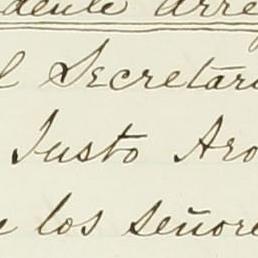 dente Arre
l Secretari
Justo Aro
e los señore